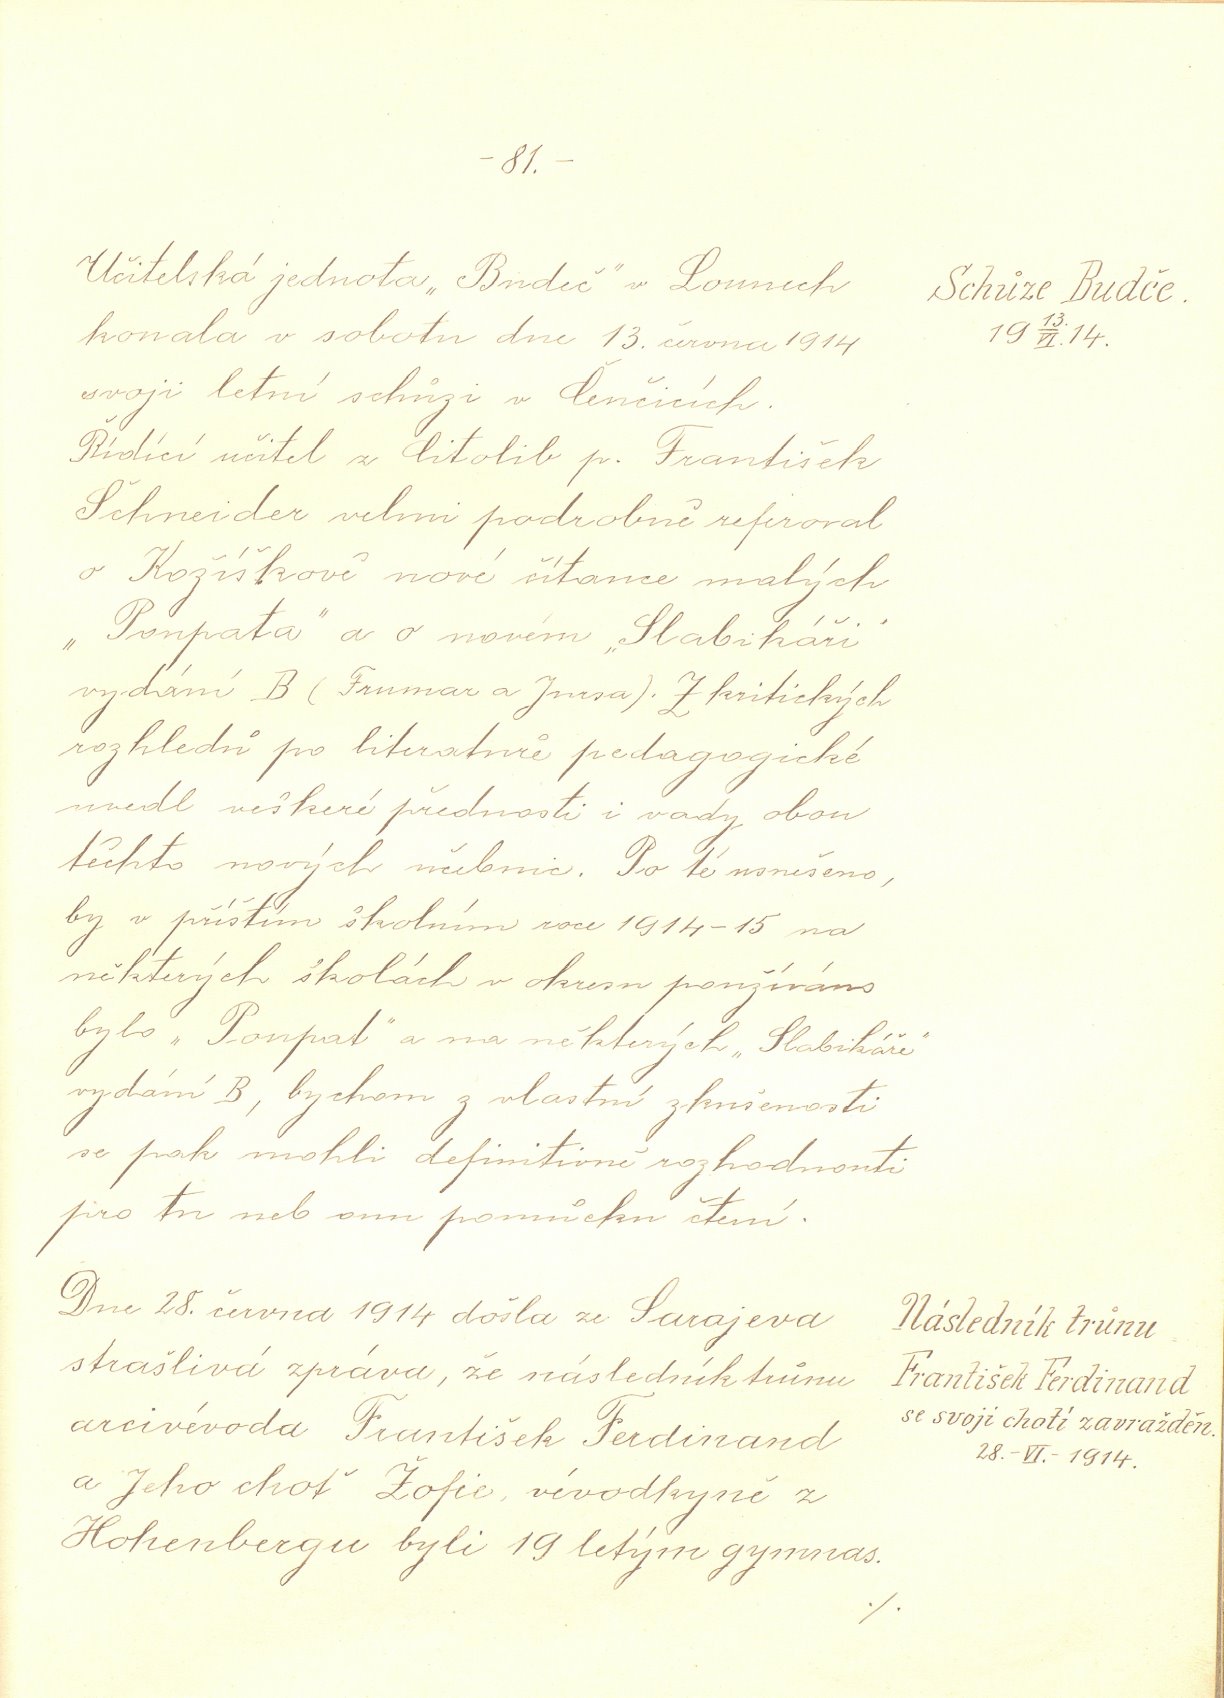 - 81. -
Učitelská jednota „Budeč" v Lounech
konala v sobotu dne 13. června 1914
svoji letní schůzi v Cenčicích.
Řídící učitel z Citolib p. František
Schneider velmi podrobně referoval
o Kožíškově nové čítance malých
„Poupata" a o novém „Slabikáři"
vydání B (Frumar a Jursa). Z kritických
rozhledů po literatuře pedagogické
uvedl veškeré přednosti i vady obou
těchto nových učebnic. Po té usnešeno,
by v příštím školním roce 1914-15 na
některých školách v okresu používáno
bylo „Poupat" a na některých „Slabikáře"
vydání B, bychom z vlastní zkušenosti
se pak mohli definitivně rozhodnouti
pro tu neb onu pomůcku čtení.
Schůze Budče.
19 13./VI. 14.
Dne 28. června 1914 došla ze Sarajeva
strašlivá zpráva, že následník trůnu
arcivévoda František Ferdinand
a Jeho choť Žofie, vévodkyně z
Hohenbergu byli 19 letým gymnas.
./.
Následník trůnu
František Ferdinand
se svojí chotí zavražděn.
28.-VI.- 1914.